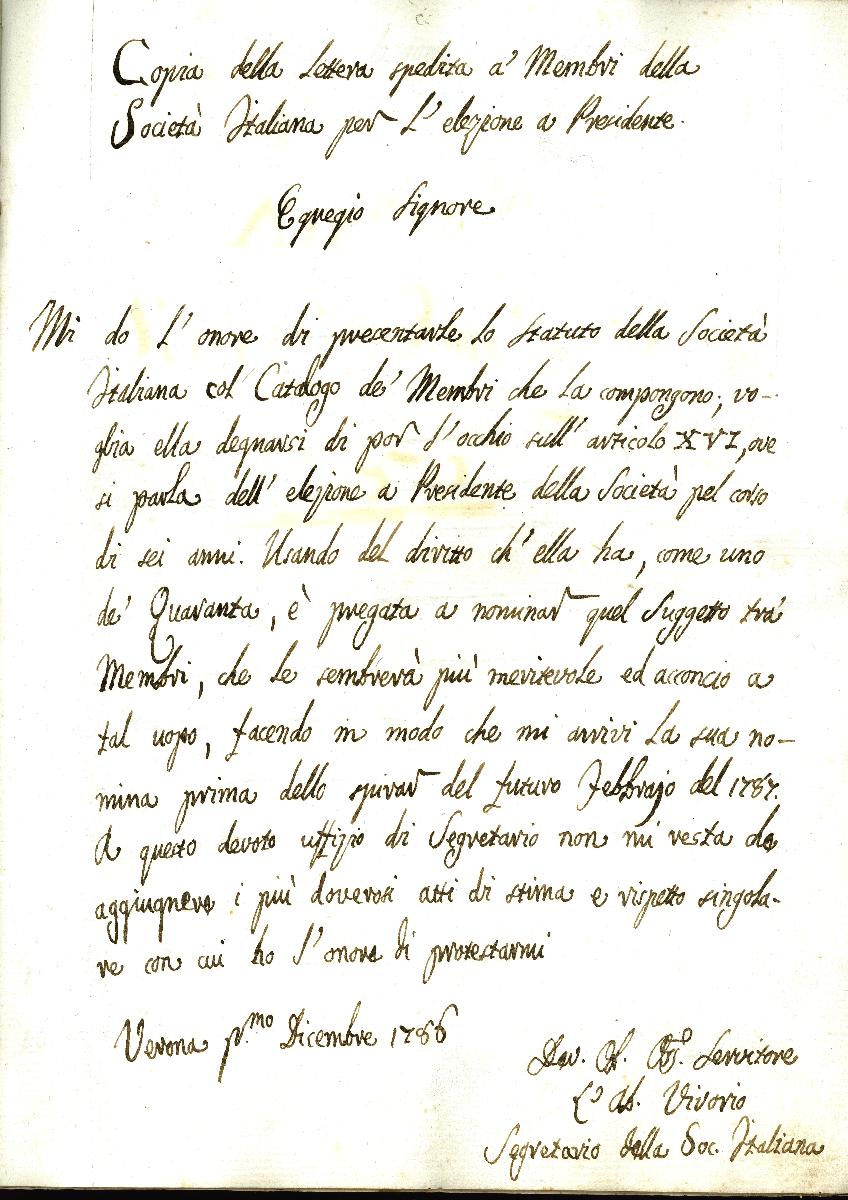 Copia della Lettera spedita a' Membri della
Società Italiana per L' elezione a Presidente.
Egregio Signore
Mi do L' onore di presentarle lo statuto della Società
Italiana col Catalogo de' Membri che la compongono; vo-
glia ella degnarsi di por l' occhio sull' articolo XVI, ove
si parla dell' elezione a Presidente della Società pel corso
di sei anni. Usando del diritto ch' ella ha, come uno
de' Quaranta, è pregata a nominar quel Suggetto tra'
Membri, che le sembrerà più meritevole ed acconcio a
tal uopo, facendo in modo che mi arrivi la sua no-
mina prima dello spirar del futuro Febbrajo del 1787.
A questo devoto uffizio di Segretario non mi resta da
aggiugnere i più doverosi atti di stima e rispetto singola-
re con cui ho l' onore di protestarmi
Verona p.mo Dicembre 1786
Servitore
L' Ab. Vivorio
Segretario della Soc. Italiana